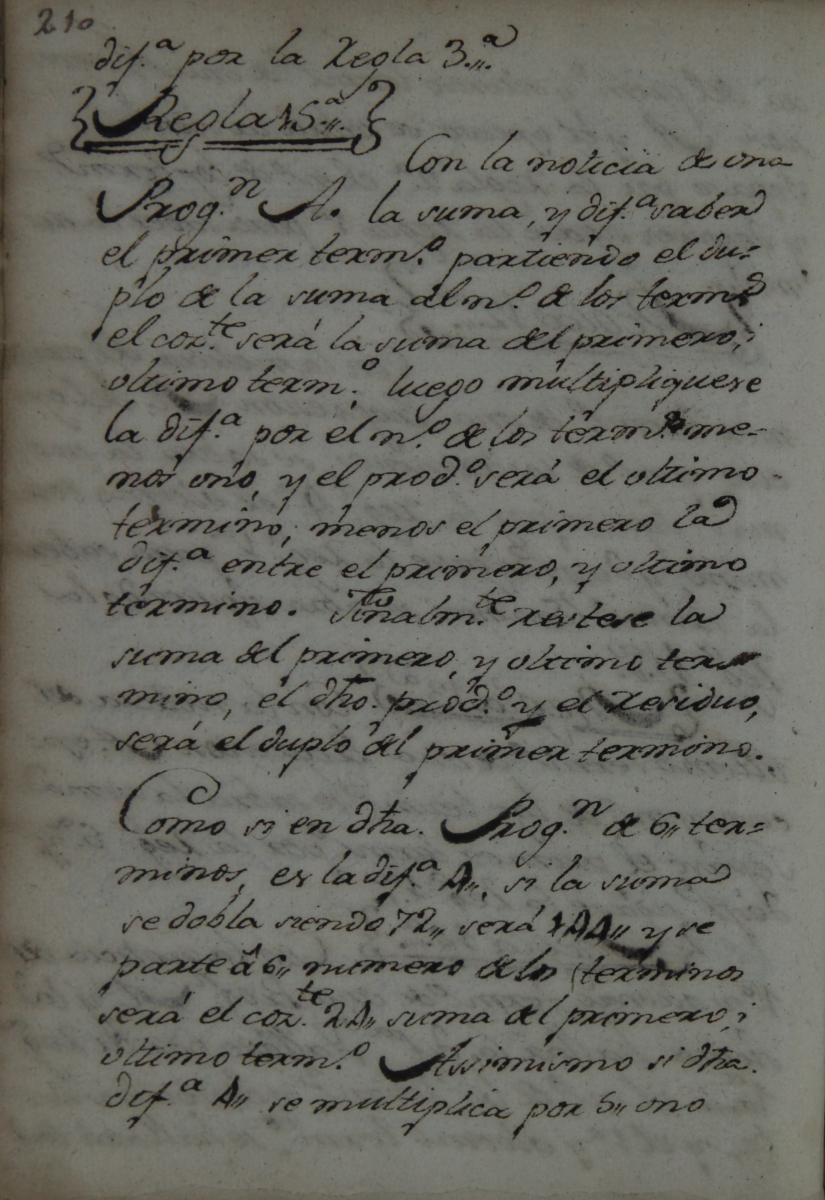 210
dif.ª por la Regla 3.ª
Regla 15.ª
Con la noticia de una
Prog.n A. la suma, y dif.ª saber
el primer term.º partiendo el du=
plo de la suma al n.º de los term.s
el coz.te será la suma del primero, i
ultimo term.º luego multipliquese
la dif.ª por el n.º de los term.s me-
nos uno, y el prod.º será el ultimo
termino, menos el primero la
dif.ª entre el primero, y ultimo
termino. Finalm.te restese la
suma del primero, y ultimo ter
mino, el dho. prod.º y el residuo,
será el duplo del primer termino.
Como si en dha. Prog.n de 6,, ter=
minos, es la dif.ª 4,, si la suma
se dobla siendo 72,, será 144,, y se
parte â 6,, numero de los terminos
será el coz.te 24,, suma del primero, i
ultimo term.º Assimismo si dha.
dif.ª 4,, se multiplica por 5,, uno